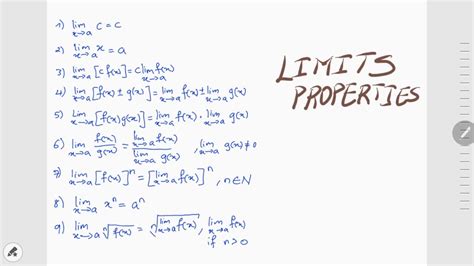 1) lim x→a c = c
2) lim x→a x = a
3) lim x→a [c f(x)] = c lim x→a f(x)
4) lim x→a [f(x) ± g(x)] = lim x→a f(x) ± lim x→a g(x)
5) lim x→a [f(x) g(x)] = lim x→a f(x) · lim x→a g(x)
6) lim x→a f(x)/g(x) = lim x→a f(x) / lim x→a g(x) , lim x→a g(x) ≠ 0
7) lim x→a [f(x)]^n = [lim x→a f(x)]^n , n ∈ N
8) lim x→a x^n = a^n
9) lim x→a ⁿ√f(x) = ⁿ√lim x→a f(x) , lim x→a f(x)
if n > 0
LIMITS
PROPERTIES